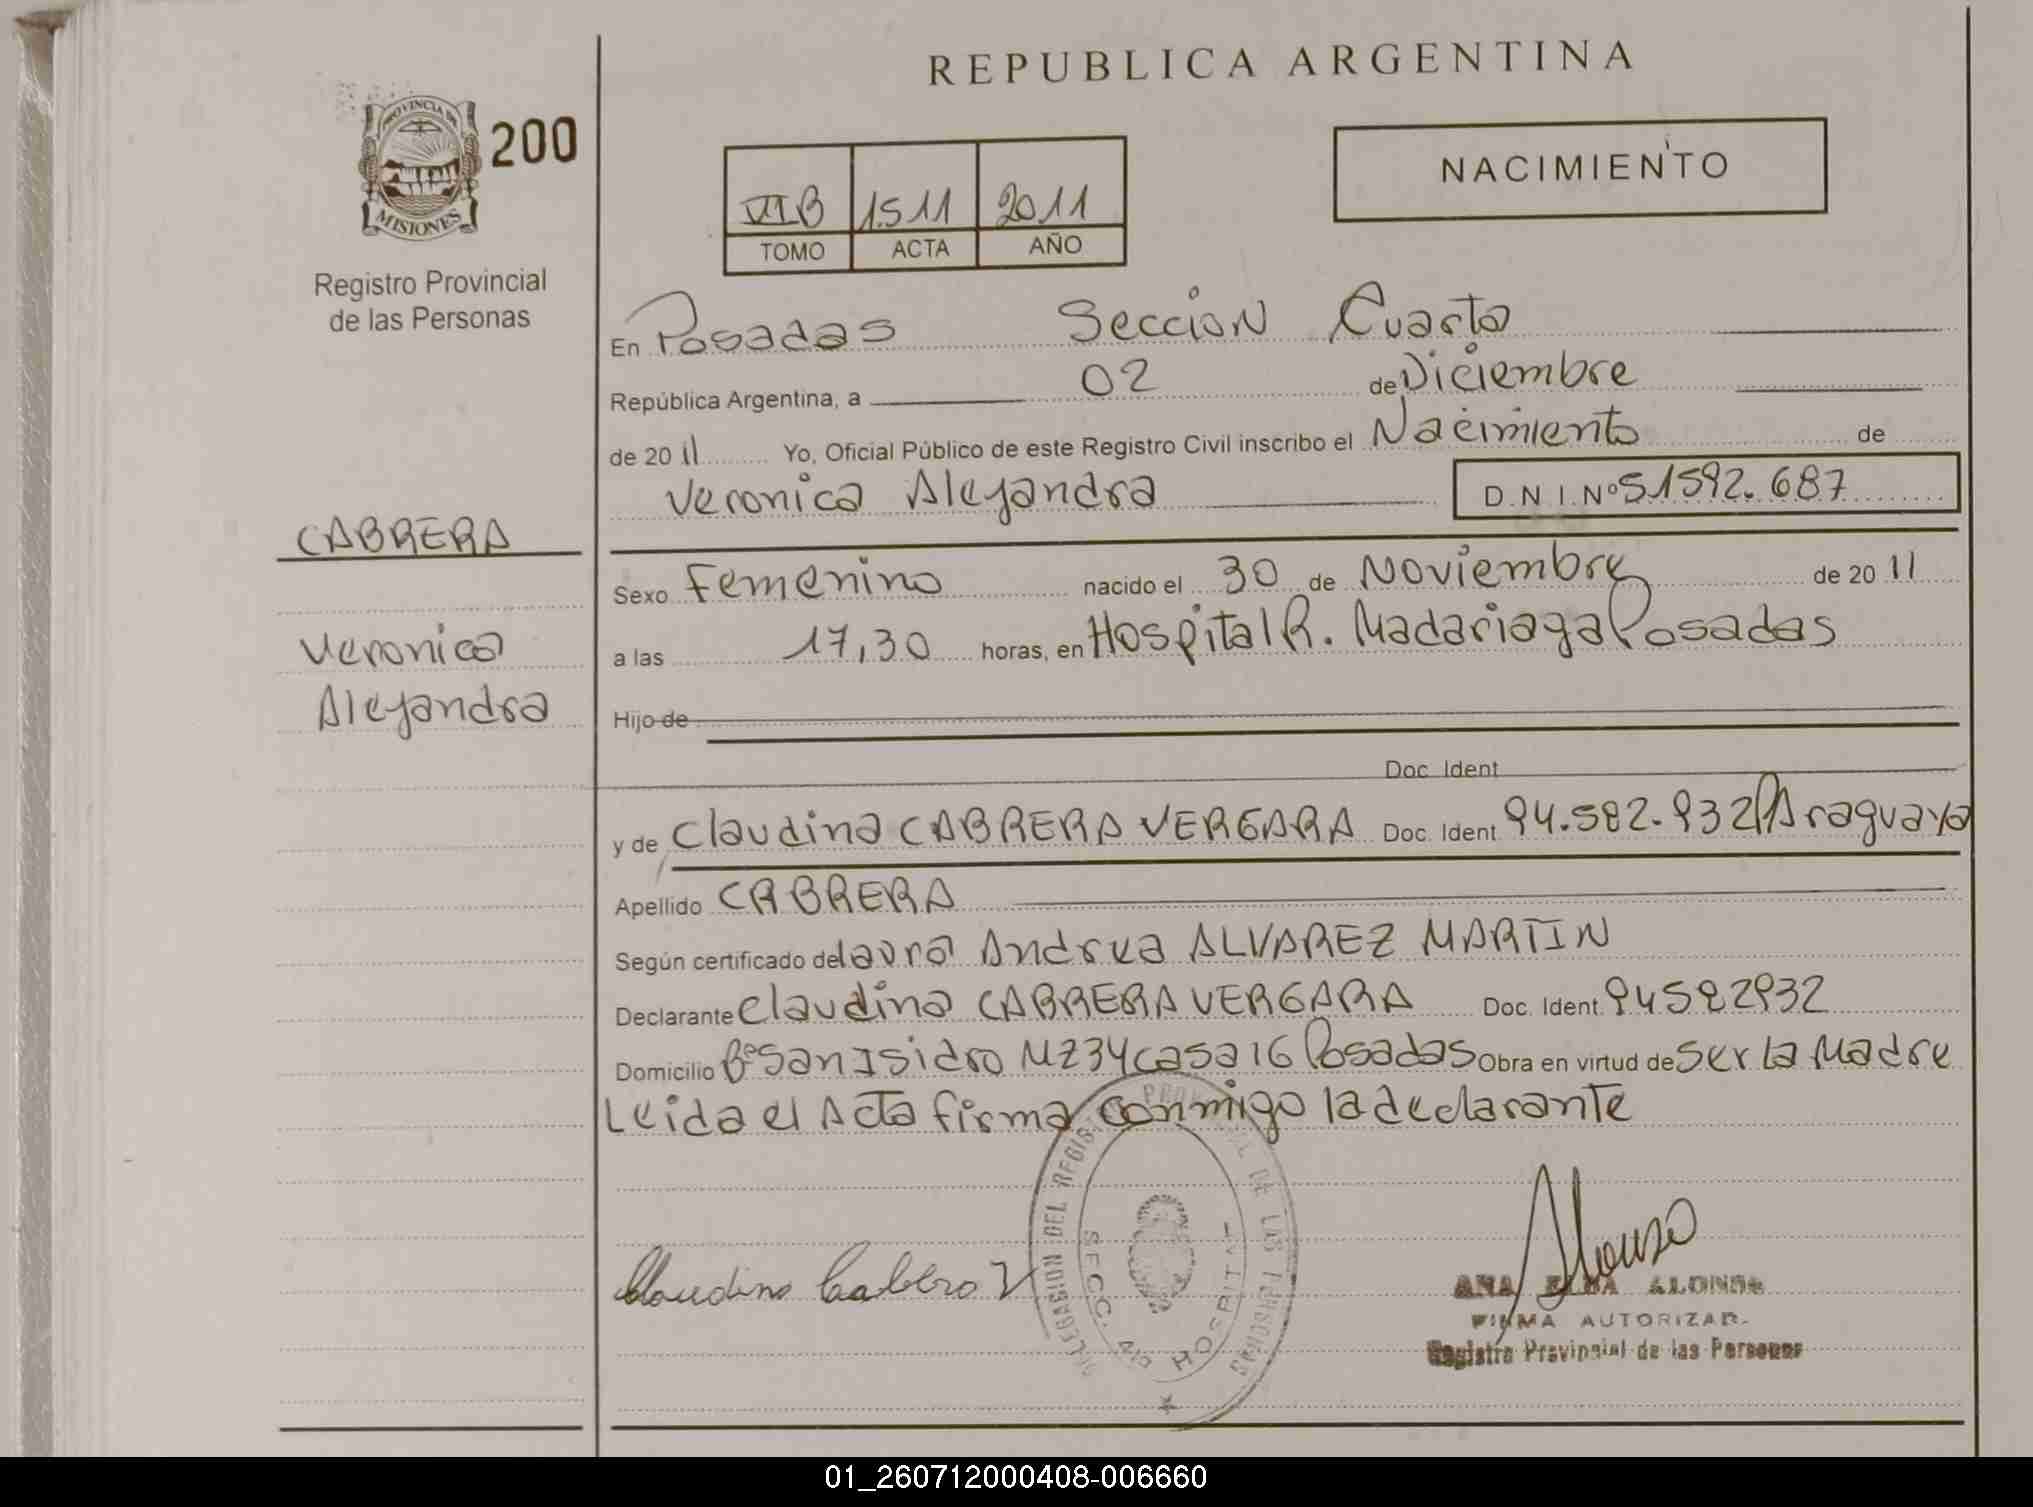 REPUBLICA ARGENTINA
PROVINCIA DE
MISIONES
200
Registro Provincial
de las Personas
VI B 1511 2011
TOMO ACTA AÑO
NACIMIENTO
En Posadas Sección Cuarta
República Argentina, a 02 de Diciembre
de 2011 Yo, Oficial Público de este Registro Civil inscribo el Nacimiento de
Veronica Alejandra D.N.I.Nº 51592.687
CABRERA
Sexo Femenino nacido el 30 de Noviembre de 2011
Veronica
a las 17,30 horas, en Hospital R. Madariaga Posadas
Alejandra
Hijo de
Doc. Ident
y de Claudina CABRERA VERGARA Doc. Ident. 94.582.932 Paraguaya
Apellido CABRERA
Según certificado de Laura Andrea ALVAREZ MARTIN
Declarante Claudina CABRERA VERGARA Doc. Ident. 94582932
Domicilio Bº San Isidro MZ 34 casa 16 Posadas Obra en virtud de ser la Madre
Leida el Acta firma conmigo la declarante
DELEGACION DEL REGISTRO PROVINCIAL DE LAS PERSONAS
SECC. 4ta HOSPITAL
Claudina Cabrera V
Alonso
ANA ELBA ALONSO
FIRMA AUTORIZAD.
Registro Provincial de las Personas
01_260712000408-006660